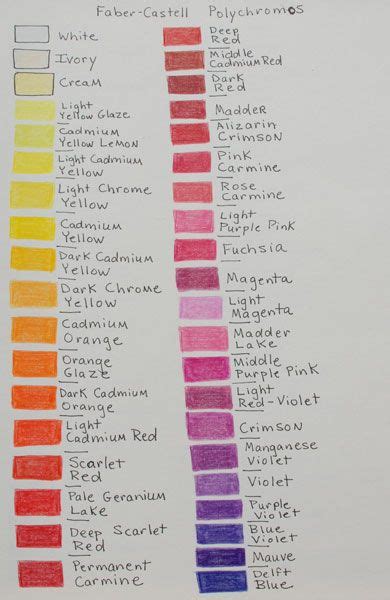 Faber-Castell Polychromos
White
Ivory
Cream
Light
Yellow Glaze
Cadmium
Yellow Lemon
Light Cadmium
Yellow
Light Chrome
Yellow
Cadmium
Yellow
Dark Cadmium
Yellow
Dark Chrome
Yellow
Cadmium
Orange
Orange
Glaze
Dark Cadmium
Orange
Light
Cadmium Red
Scarlet
Red
Pale Geranium
Lake
Deep Scarlet
Red
Permanent
Carmine
Deep
Red
Middle
Cadmium Red
Dark
Red
Madder
Alizarin
Crimson
Pink
Carmine
Rose
Carmine
Light
Purple Pink
Fuchsia
Magenta
Light
Magenta
Madder
Lake
Middle
Purple Pink
Light
Red-Violet
Crimson
Manganese
Violet
Violet
Purple
Violet
Blue
Violet
Mauve
Delft
Blue